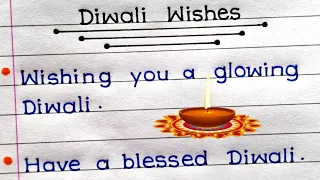 Diwali Wishes
Wishing you a glowing
Diwali.
Have a blessed Diwali.